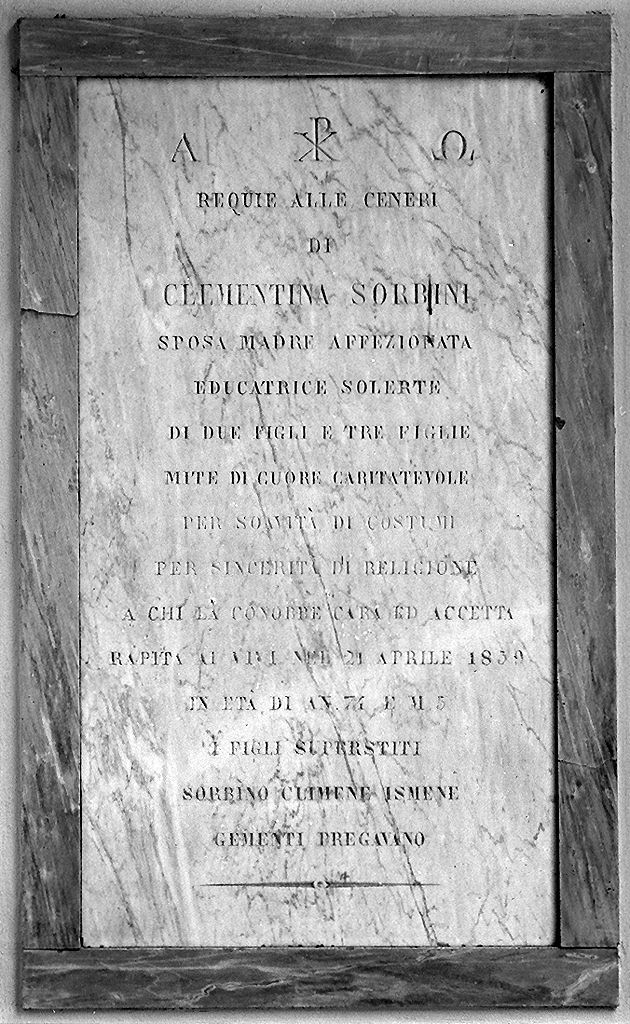 Α ☧ Ω
REQUIE ALLE CENERI
DI
CLEMENTINA SORBINI
SPOSA MADRE AFFEZIONATA
EDUCATRICE SOLERTE
DI DUE FIGLI E TRE FIGLIE
MITE DI CUORE CARITATEVOLE
PER SOAVITÀ DI COSTUMI
PER SINCERITÀ DI RELIGIONE
A CHI LA CONOBBE CARA ED ACCETTA
RAPITA AI VIVI NEL 21 APRILE 1859
IN ETÀ DI AN. 71 E M 5
I FIGLI SUPERSTITI
SORBINO CLIMENE ISMENE
GEMENTI PREGAVANO